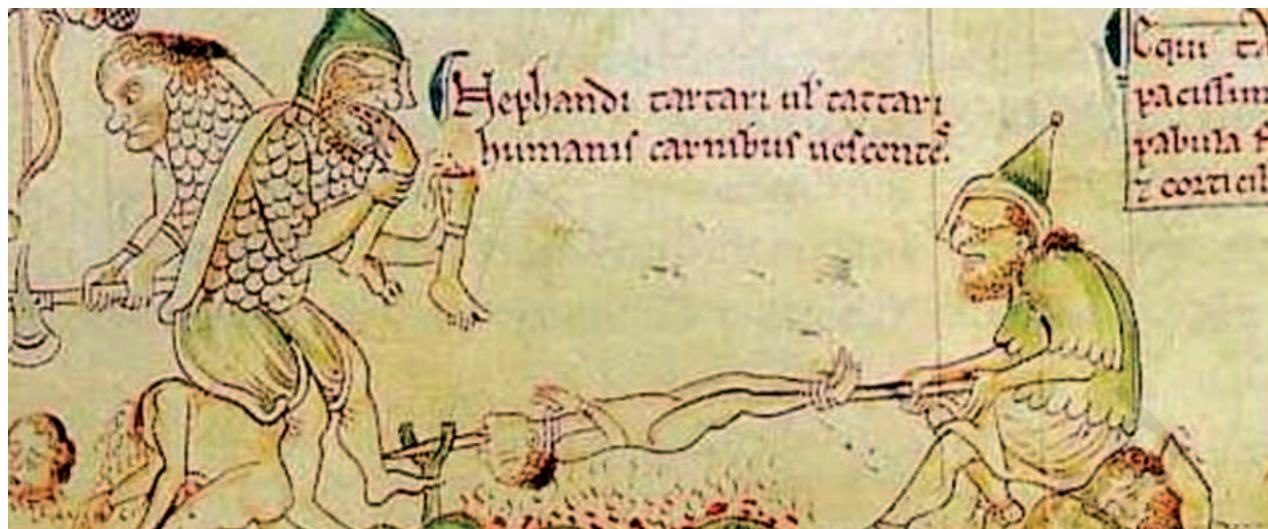 Nephandi tartari ul' tattari
humanis carnibus uescente
Equi
pacissim
pabula f
z corticib